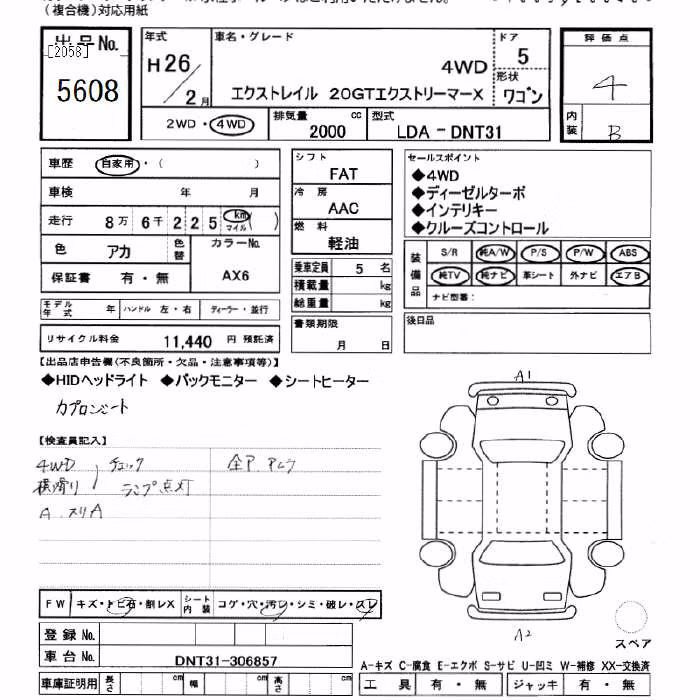 (複合機)対応用紙
出品No. 年式 車名・グレード ドア 評価点
[2058] 5608 H26/2月 4WD 5 4
エクストレイル 20GTエクストリーマーX 形状 ワゴン
2WD・4WD 排気量 2000 cc 型式 LDA－DNT31 内装 B
車歴 自家用・( ) シフト FAT セールスポイント
車検 年 月 冷房 AAC ◆4WD
◆ディーゼルターボ
◆インテリキー
◆クルーズコントロール
走行 8万 6千 2 2 5 km マイル ( ) 燃料 軽油
色 アカ 色替 カラーNo. AX6 乗車定員 5 名
保証書 有・無 積載量 kg
総重量 kg
装備品 S/R 純A/W P/S P/W ABS
純TV 純ナビ 革シート 外ナビ エアB
ナビ型番：
モデル年式 年 ハンドル 左・右 ディーラー・並行 書類期限 月 日 後日品
リサイクル料金 11,440 円 預託済
【出品店申告欄(不良箇所・欠品・注意事項等)】
◆HIDヘッドライト ◆バックモニター ◆シートヒーター
カプロンシート
A1
【検査員記入】
4WD チェック 全P.
横滑り ランプ点灯
A
FW キズ・トビ石・割レX シート内装 コゲ・穴・汚レ・シミ・破レ・スレ
登録No.
A2 スペア
車台No. DNT31-306857
A-キズ C-腐食 E-エクボ S-サビ U-凹ミ W-補修 XX-交換済
車庫証明用 長さ cm 幅 cm 高さ cm 工具 有・無 ジャッキ 有・無